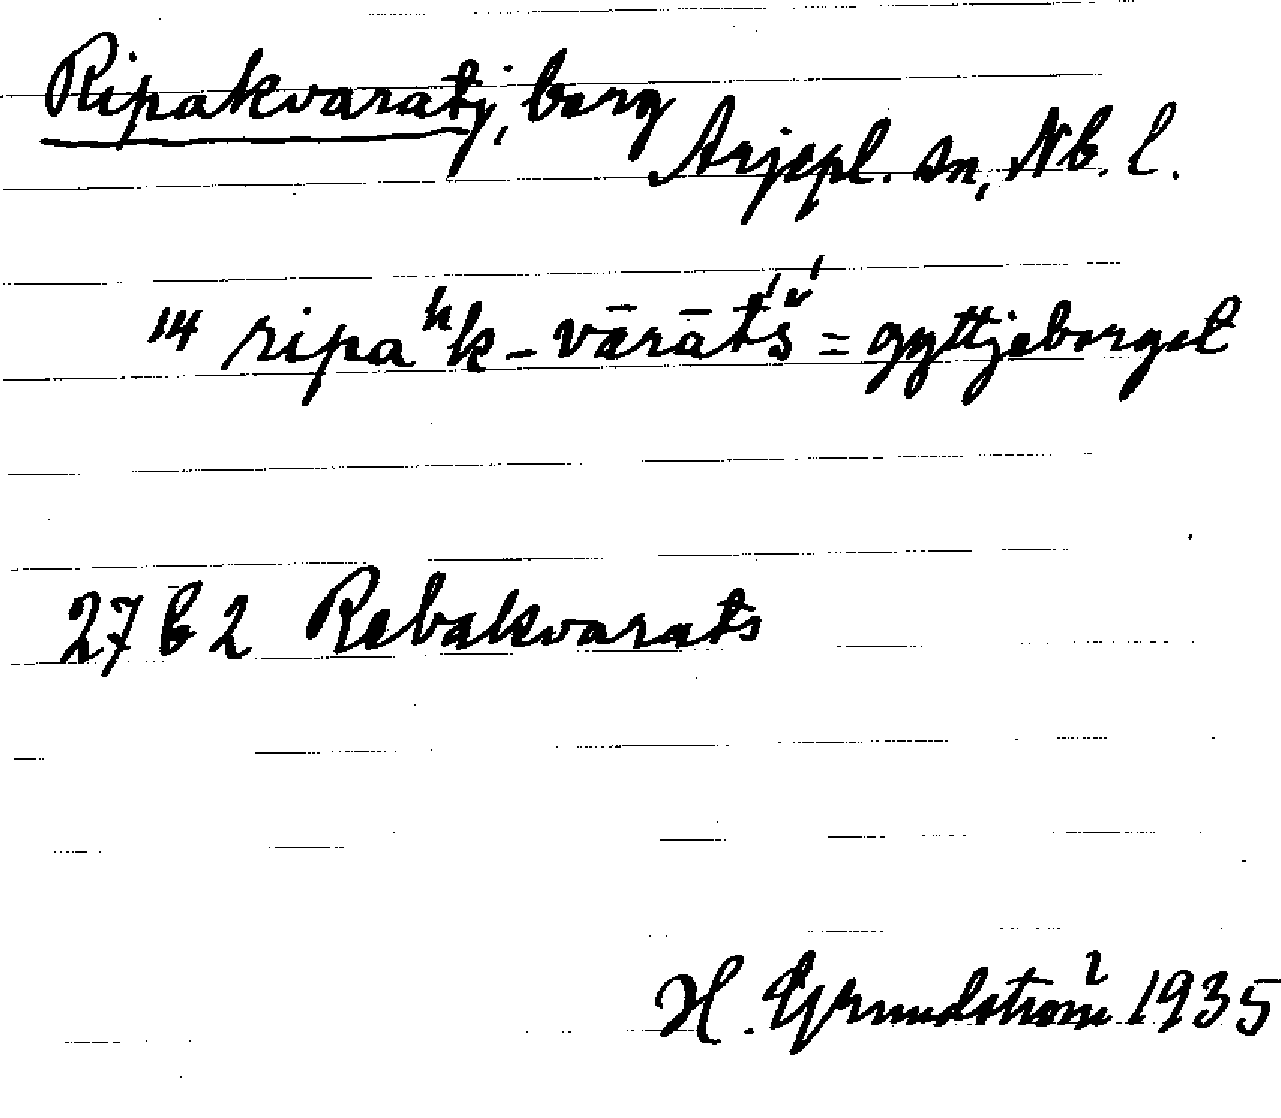 Ripakvaratj, berg
Arjepl. sn, Nb. l.
‴ ripaʰk-vārāt́š́ = gyttjeberget
27 C 2 Rebakvarats
H. Grundström 1935